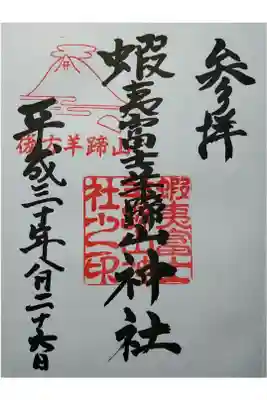 参拝
蝦夷富士羊蹄山神社
平成三十年八月二十六日
後方羊蹄山
蝦夷富士
羊蹄山神
社之印